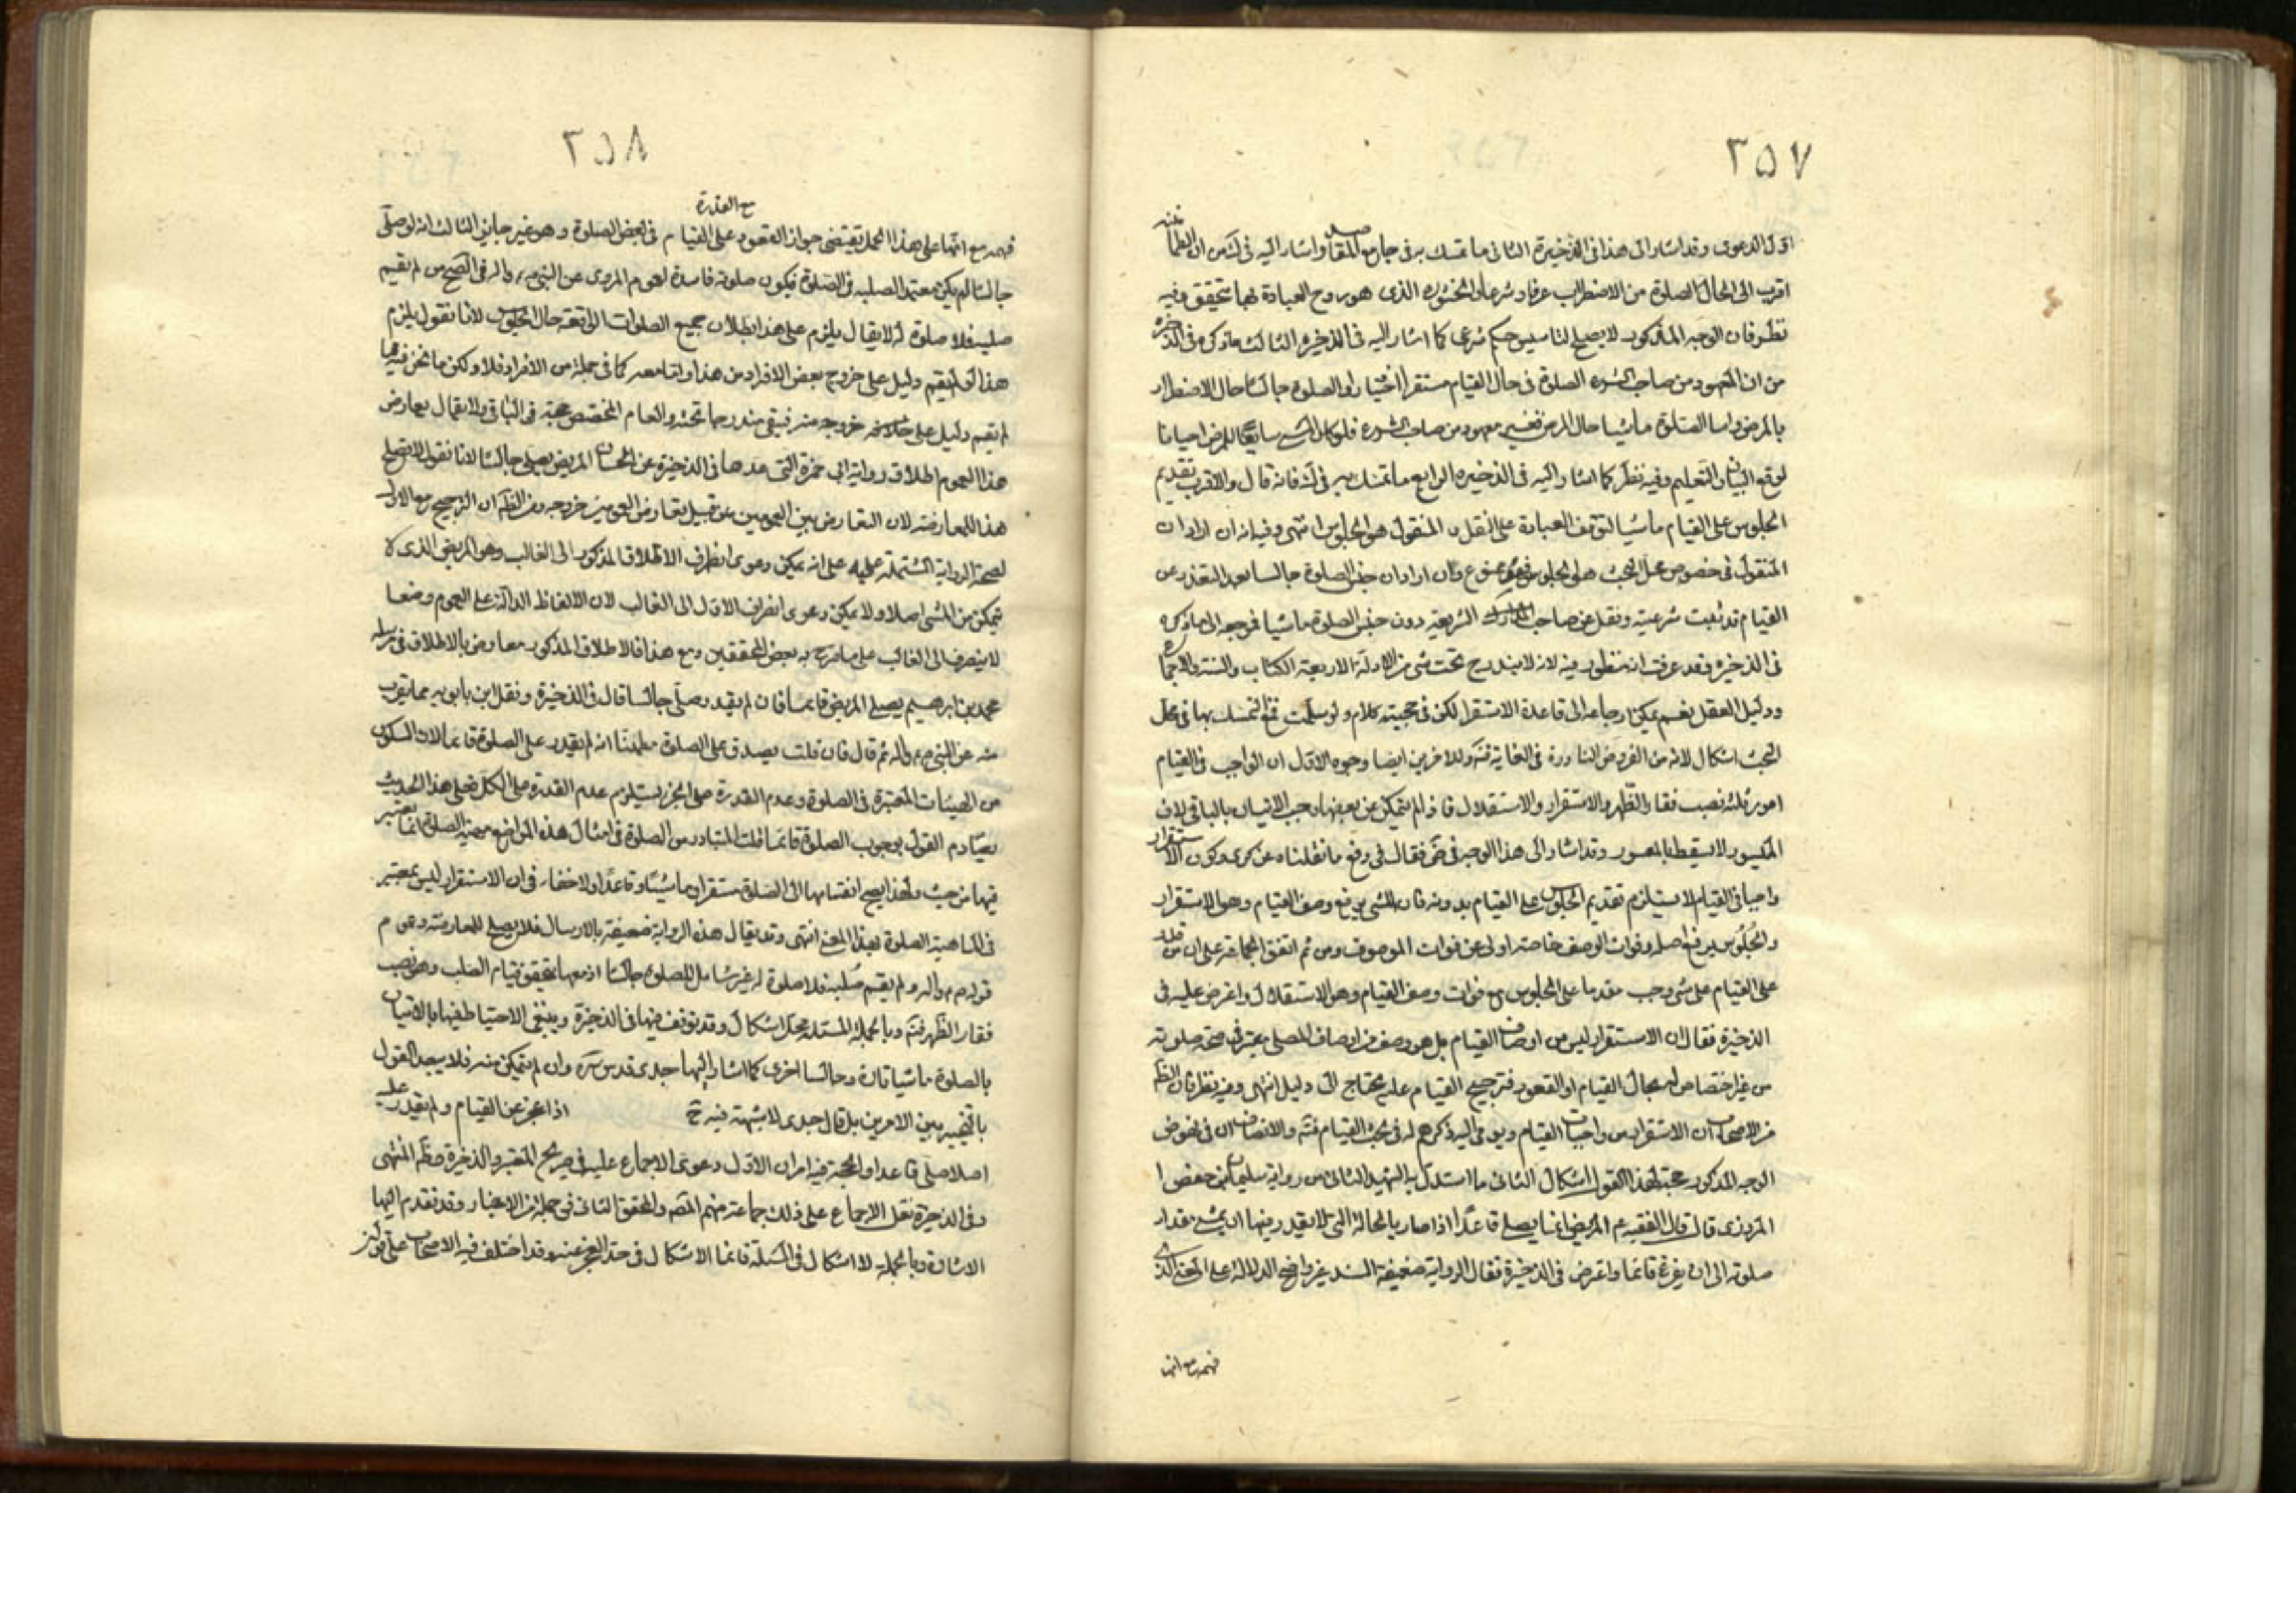 ٢٥٧
اول الدعوى وقد اشار الى هذا فى الذخيرة الثانى ما تمسك به فى جامع المقاصد واشار اليه فى ان الطمأنينة
اقرب الى الحال الصلوة من الاضطراب عرفا وشرعا والخشوع الذى هو روح العبادة بها يتحقق وفيه
نظر فان الوجه المذكور لا يصلح لتاسيس حكم شرعى كما اشار اليه فى الذخيرة الثالث ما ذكره فى الذخيرة
من ان المعهود من صاحب الشرع الصلوة فى حال القيام مستقرا اختيارا والصلوة جالسا حال الاضطرار
بالمرض واما الصلوة ماشيا حال المرض فغير معهود من صاحب الشرع فلو كان المشى سايغا للمرض احيانا
لوقع البيان والتعليم وفيه نظر كما اشار اليه فى الذخيرة الرابع ما تمسك به فى فانه قال والاقرب تقديم
الجلوس على القيام ماشيا لتوقف العبادة على النقل والمنقول هو الجلوس انتهى وفيه انه ان اراد ان
المنقول فى خصوص محل البحث هو الجلوس فهو ممنوع وان اراد ان جنس الصلوة جالسا بعد التعذر عن
القيام قد ثبت شرعيته ونقل عن صاحب الشريعة دون جنس الصلوة ماشيا فمرجعه الى ما ذكره
فى الذخيرة وقد عرفت انه منظور فيه لانه لا يندرج تحت شئ من الادلة الاربعة الكتاب والسنة والاجماع
ودليل العقل نعم يمكن ارجاعه الى قاعدة الاستقرا لكن فى حجيته كلام ولو سلمت ففى التمسك بها فى محل
البحث اشكال لانه من الفروض النادرة فى الغاية فتـ وللاخرين ايضا وجوه الاول ان الواجب فى القيام
امور ثلثة نصب فقار الظهر والاستقرار والاستقلال فاذا لم يتمكن من بعضها وجب الاتيان بالباقى لان
الميسور لا يسقط بالمعسور وقد اشار الى هذا الوجه فى ض فقال فى دفع ما نقلناه عن كرى وكون الاستقرار
واجبا فى القيام لا يستلزم تقديم الجلوس على القيام بدونه فان المشى يرفع وصف القيام وهو الاستقرار
والجلوس يرفع اصله وفوات الوصف خاصة اولى من فوات الموصوف ومن ثم اتفق الجماعة على ان من قدر
على القيام على شئ وجب مقدما على الجلوس مع فوات وصف القيام وهو الاستقلال واعترض عليه فى
الذخيرة فقال ان الاستقرار ليس من اوصاف القيام بل هو وصف من اوصاف المصلى معتبر فى صحة صلوته
من غير اختصاص له بحال القيام او القعود فترجيح القيام عليه يحتاج الى دليل انتهى وفيه نظر فان الظ
من الاصحاب ان الاستقرار من واجبات القيام ويومى اليه ذكرهم له فى بحث القيام فتـ والانصاف ان فى نهوض
الوجه المذكور حجة لهذا القول اشكال الثانى ما استدل به الشهيد الثانى من رواية سليمان بن حفص ا
المروزى قال قال الفقيه ع المريض انما يصلى قاعدا اذا صار بالحالة التى لا يقدر فيها ان يمشى مقدار
صلوته الى ان يفرغ قائما واعترض فى الذخيرة فقال الرواية ضعيفة السند غير واضح الدلالة على المعنى الذى
فهمه مع انها
٢٥٨
مع القدرة
فهمه مع انها على هذا الحمل يقتضى جواز القعود على القيام فى بعض الصلوة وهو غير جايز الثالث انه لو صلى
جالسا لم يكن معتمد الصلبه فى الصلوة فيكون صلوته فاسدة لعموم المروى عن النبى ص واله فى الصحيح من لم يقيم
صلبه فلا صلوة له لا يقال يلزم على هذا بطلان جميع الصلوات الواقعة حال الجلوس لانا نقول يلزم
هذا لو لم يقم دليل على خروج بعض الافراد من هذا واما معه كما فى جملة من الافراد فلا ولكن ما نحن فيه مما
لم يقم دليل على خروجه منه فيبقى مندرجا تحته والعام المخصص حجة فى الباقى ولا يقال يعارض
هذا العموم اطلاق رواية ابى حمزة التى عدها فى الذخيرة من الحسان المريض يصلى جالسا لانا نقول لا يصلح
هذا للمعارضة لان التعارض بين العمومين من قبيل تعارض العمومين من وجه ومن الظ ان الترجيح مع الاول
لصحة الرواية المشتملة عليه على انه يمكن دعوى انصراف الاطلاق المذكور الى الغالب وهو المريض الذى لا
يتمكن من المشى اصلا ولا يمكن دعوى انصراف الاول الى الغالب لان الالفاظ الدالة على العموم وضعا
لا ينصرف الى الغالب على ما صرح به بعض المحققين ومع هذا فالاطلاق المذكور معارض بالاطلاق فى مرسلة
محمد بن ابراهيم يصلى المريض قائما فان لم يقدر صلى جالسا قال فى الذخيرة ونقل ابن بابويه مما يقرب
منه عن النبى ص واله ثم قال فان قلت يصدق على الصلوة مطمئنا انه لم يقدر على الصلوة قائما لان السكون
من الهيئات المعتبرة فى الصلوة وعدم القدرة على الجزء يستلزم عدم القدرة على الكل فعلى هذا الحديث
يصادم القول بوجوب الصلوة قائما قلت المتبادر من الصلوة فى امثال هذه المواضع مهية الصلوة انما يعتبر
فيها من حيث ولهذا يصح انقسامها الى الصلوة مستقرا وماشيا وقاعدا ولا خفاء فى ان الاستقرار ليس بمعتبر
فى الماهية الصلوة بهذا المعنى انتهى وقد يقال هذه الرواية ضعيفة بالارسال فلا يصلح للمعارضة وعموم
قوله ص واله ولم يقم صلبه فلا صلوة له غير شامل للصلوة جالسا اذ معها يتحقق قيام الصلب وهو نصب
فقار الظهر فتـ وبالجملة المسئلة محل اشكال وقد توقف فيها فى الذخيرة وينبغى الاحتياط فيها بالاتيان
بالصلوة ماشيا تارة وجالسا اخرى كما اشار اليها جدى قدس سره وان لم يتمكن منه فلا يبعد القول
بالتخيير بين الامرين بل قال جدى لا شبهة فيه ح اذا عجز عن القيام ولم يقدر عليه
اصلا صلى قاعدا والحجة فيه امران الاول دعوى الاجماع عليه فى صريح المعتبر والذخيرة وظ المنتهى
وفى الذخيرة نقل الاجماع على ذلك جماعة منهم المص والمحقق الثانى فى جملة من الاخبار وقد تقدم اليها
الاشارة وبالجملة لا اشكال فى المسئلة فانما الاشكال فى حد العجز عنه وقد اختلف فيه الاصحاب على قولين